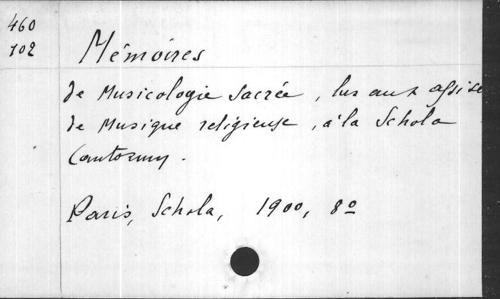 460
102
Mémoires
de Musicologie Sacrée, lus aux assise
de Musique religieuse, à la Schola
Cantorum.
Paris, Schola, 1900, 8o